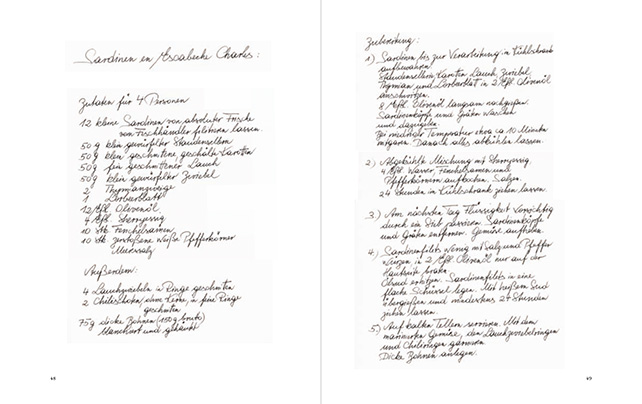 Sardinen en Escabeche Charles:
Zutaten für 4 Personen
12 kleine Sardinen von absoluter Frische
vom Fischhändler filetieren lassen
50 g klein gewürfelter Staudensellerie
50 g klein geschnittene, geschälte Karotten
50 g fein geschnittener Lauch
50 g klein gewürfelter Zwiebel
2 Thymianzweige
1 Lorbeerblatt
12 Eßl. Olivenöl
4 Eßl. Sherryessig
10 Stk Fenchelsamen
10 Stk zerstoßene weiße Pfefferkörner
Meersalz
Außerdem:
4 Lauchzwiebeln in Ringe geschnitten
2 Chilischoten, ohne Kerne, in feine Ringe
geschnitten
75 g dicke Bohnen (150 g brutto)
blanchiert und gehäutet
48
Zubereitung:
1) Sardinen bis zur Verarbeitung im Kühlschrank
aufbewahren.
Staudensellerie, Karotten, Lauch, Zwiebel,
Thymian und Lorbeerblatt in 2 Eßl. Olivenöl
anschwitzen.
8 Eßl. Olivenöl langsam nachgießen.
Sardinenköpfe und Gräten waschen
und dazugeben.
Bei mittlerer Temperatur etwa 10 Minuten
mitgaren. Danach alles abkühlen lassen.
2) Abgekühlte Mischung mit Sherryessig,
4 Eßl. Wasser, Fenchelsamen und
Pfefferkörnern aufkochen. Salzen.
24 Stunden im Kühlschrank ziehen lassen.
3.) Am nächsten Tag Flüssigkeit vorsichtig
durch ein Sieb passieren. Sardinenköpfe
und Gräten entfernen. Gemüse aufheben.
4.) Sardinenfilets wenig mit Salz und Pfeffer
würzen, in 2 Eßl. Olivenöl nur auf der
Hautseite braten.
Sud erhitzen. Sardinenfilets in eine
flache Schüssel legen. Mit heißem Sud
übergießen und mindestens 24 Stunden
ziehen lassen.
5) Auf kalten Tellern servieren. Mit dem
marinierten Gemüse, den Lauchzwiebelringen
und Chiliringen garnieren.
Dicke Bohnen anlegen.
49